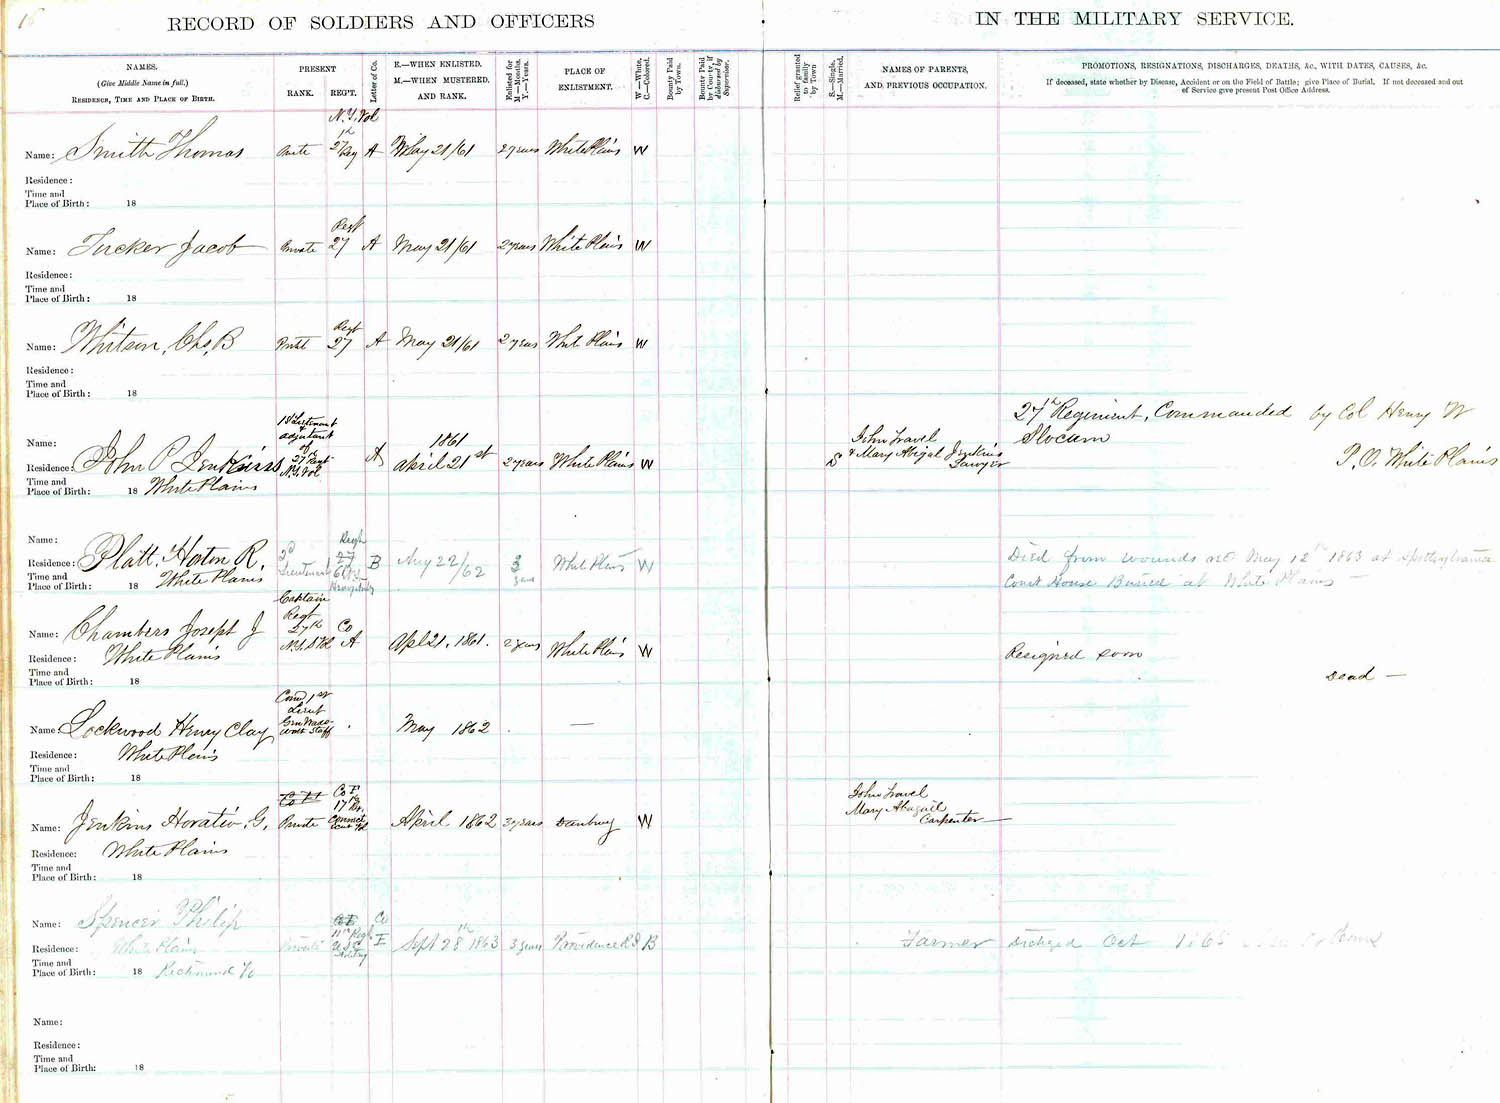 16
RECORD OF SOLDIERS AND OFFICERS IN THE MILITARY SERVICE.
NAMES.
(Give Middle Name in full.)
RESIDENCE, TIME AND PLACE OF BIRTH.
PRESENT
RANK. REG'T.
Letter of Co.
E.—WHEN ENLISTED.
M.—WHEN MUSTERED.
AND RANK.
Enlisted for
M.—Months.
Y.—Years.
PLACE OF
ENLISTMENT.
W.—White.
C.—Colored.
Bounty Paid
by Town.
Bounty Paid
by County, if
disbursed by
Supervisor.
Relief granted
to family
by Town
S.—Single.
M.—Married.
NAMES OF PARENTS,
AND PREVIOUS OCCUPATION.
PROMOTIONS, RESIGNATIONS, DISCHARGES, DEATHS, &c., WITH DATES, CAUSES, &c.
If deceased, state whether by Disease, Accident or on the Field of Battle; give Place of Burial. If not deceased and out
of Service give present Post Office Address.
N.Y. Vol
Name: Smith Thomas Private 27th Reg A May 21/61 2 years White Plains W
Residence:
Time and
Place of Birth: 18
Regt
Name: Tucker Jacob Private 27 A May 21/61 2 years White Plains W
Residence:
Time and
Place of Birth: 18
Regt
Name: Whitson, Chs, B Private 27 A May 21/61 2 years White Plains W
Residence:
Time and
Place of Birth: 18
27th Regiment, Commanded by Col Henry W
Slocum
Name:
1st Lieutenant
&
adjutant
of
27th Regt
N.Y. Vol
Residence: John P Jenkins A 1861 April 21st 2 years White Plains W S
John Travel
& Mary Abigal Jenkins
Lawyer
P.O. White Plains
Time and
Place of Birth: 18 White Plains
Name:
Residence: Platt, Horton R, 2d Lieutenant Regt 27 B Aug 22/62 3 years White Plains W
Died from wounds rec May 12th 1863 at Spottsylvania
Court House Buried at White Plains —
Time and White Plains
Place of Birth: 18
Captain
Regt
27th
N.Y.S Vol
Name: Chambers Joseph J Co A Apl 21, 1861. 2 years White Plains W
Residence: White Plains Resigned soon
Dead —
Time and
Place of Birth: 18
Com 1st
Lieut
Gen Wads-
worth Staff
Name Lockwood Henry Clay May 1862 —
Residence: White Plains
Time and
Place of Birth: 18
Co H
Co I
17th
Name: Jenkins Horatio, G, Private April 1862 3 years Danbury W
John Travel
Mary Abagail
Carpenter —
Residence: White Plains
Time and
Place of Birth: 18
Name: Spencer Philip
Co E
11th Regt
U.S.C
Artillery
Co
E
Residence: White Plains Private Sept 28th 1863 3 years Providence R I B Farmer Dischged Oct 1865
Time and
Place of Birth: 18 Richmond Va
Name:
Residence:
Time and
Place of Birth: 18